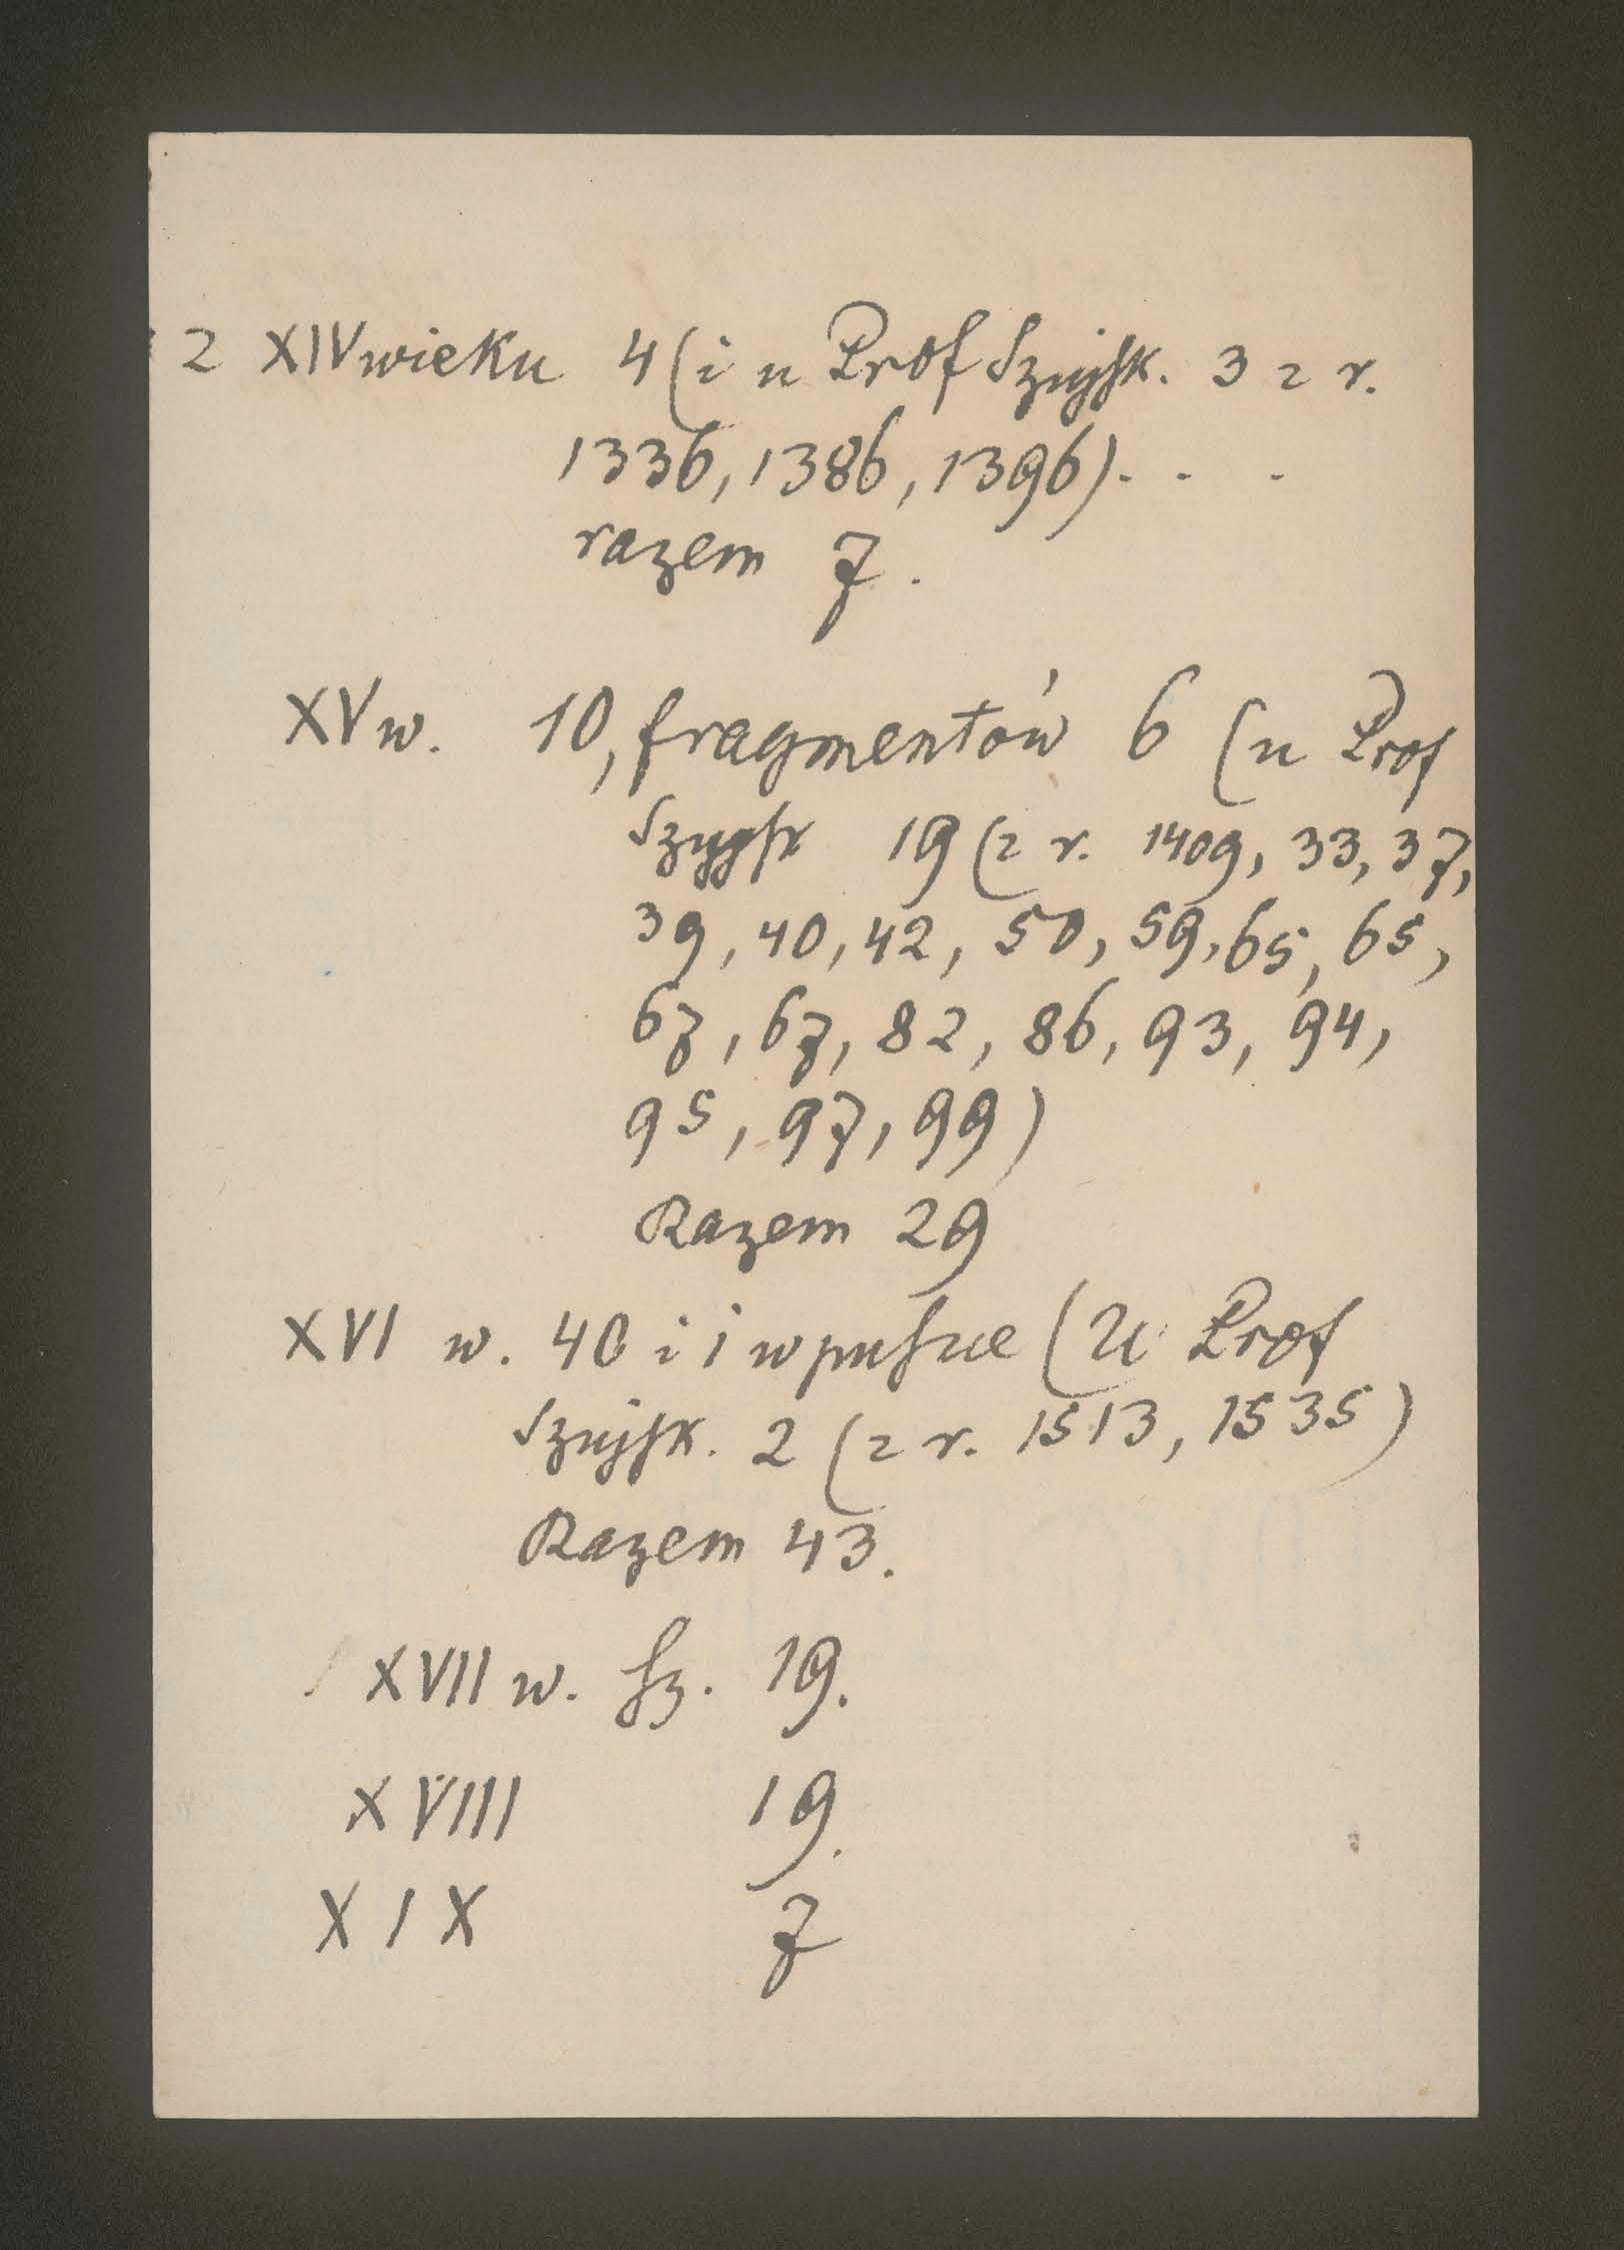 z XIV wieku 4 (i u Prof Szujsk. 3 z r.
1336, 1386, 1396) . . .
razem 7.
XV w. 10, fragmentów 6 (u Prof
Szujsk 19 (z r. 1409, 33, 37,
39, 40, 42, 50, 59, 65, 65,
67, 67, 82, 86, 93, 94,
95, 97, 99)
Razem 29
XVI w. 40 i 1 w puszce (U Prof
Szujsk. 2 (z r. 1513, 1535)
Razem 43.
XVII w. sz. 19.
XVIII 19.
XIX 7